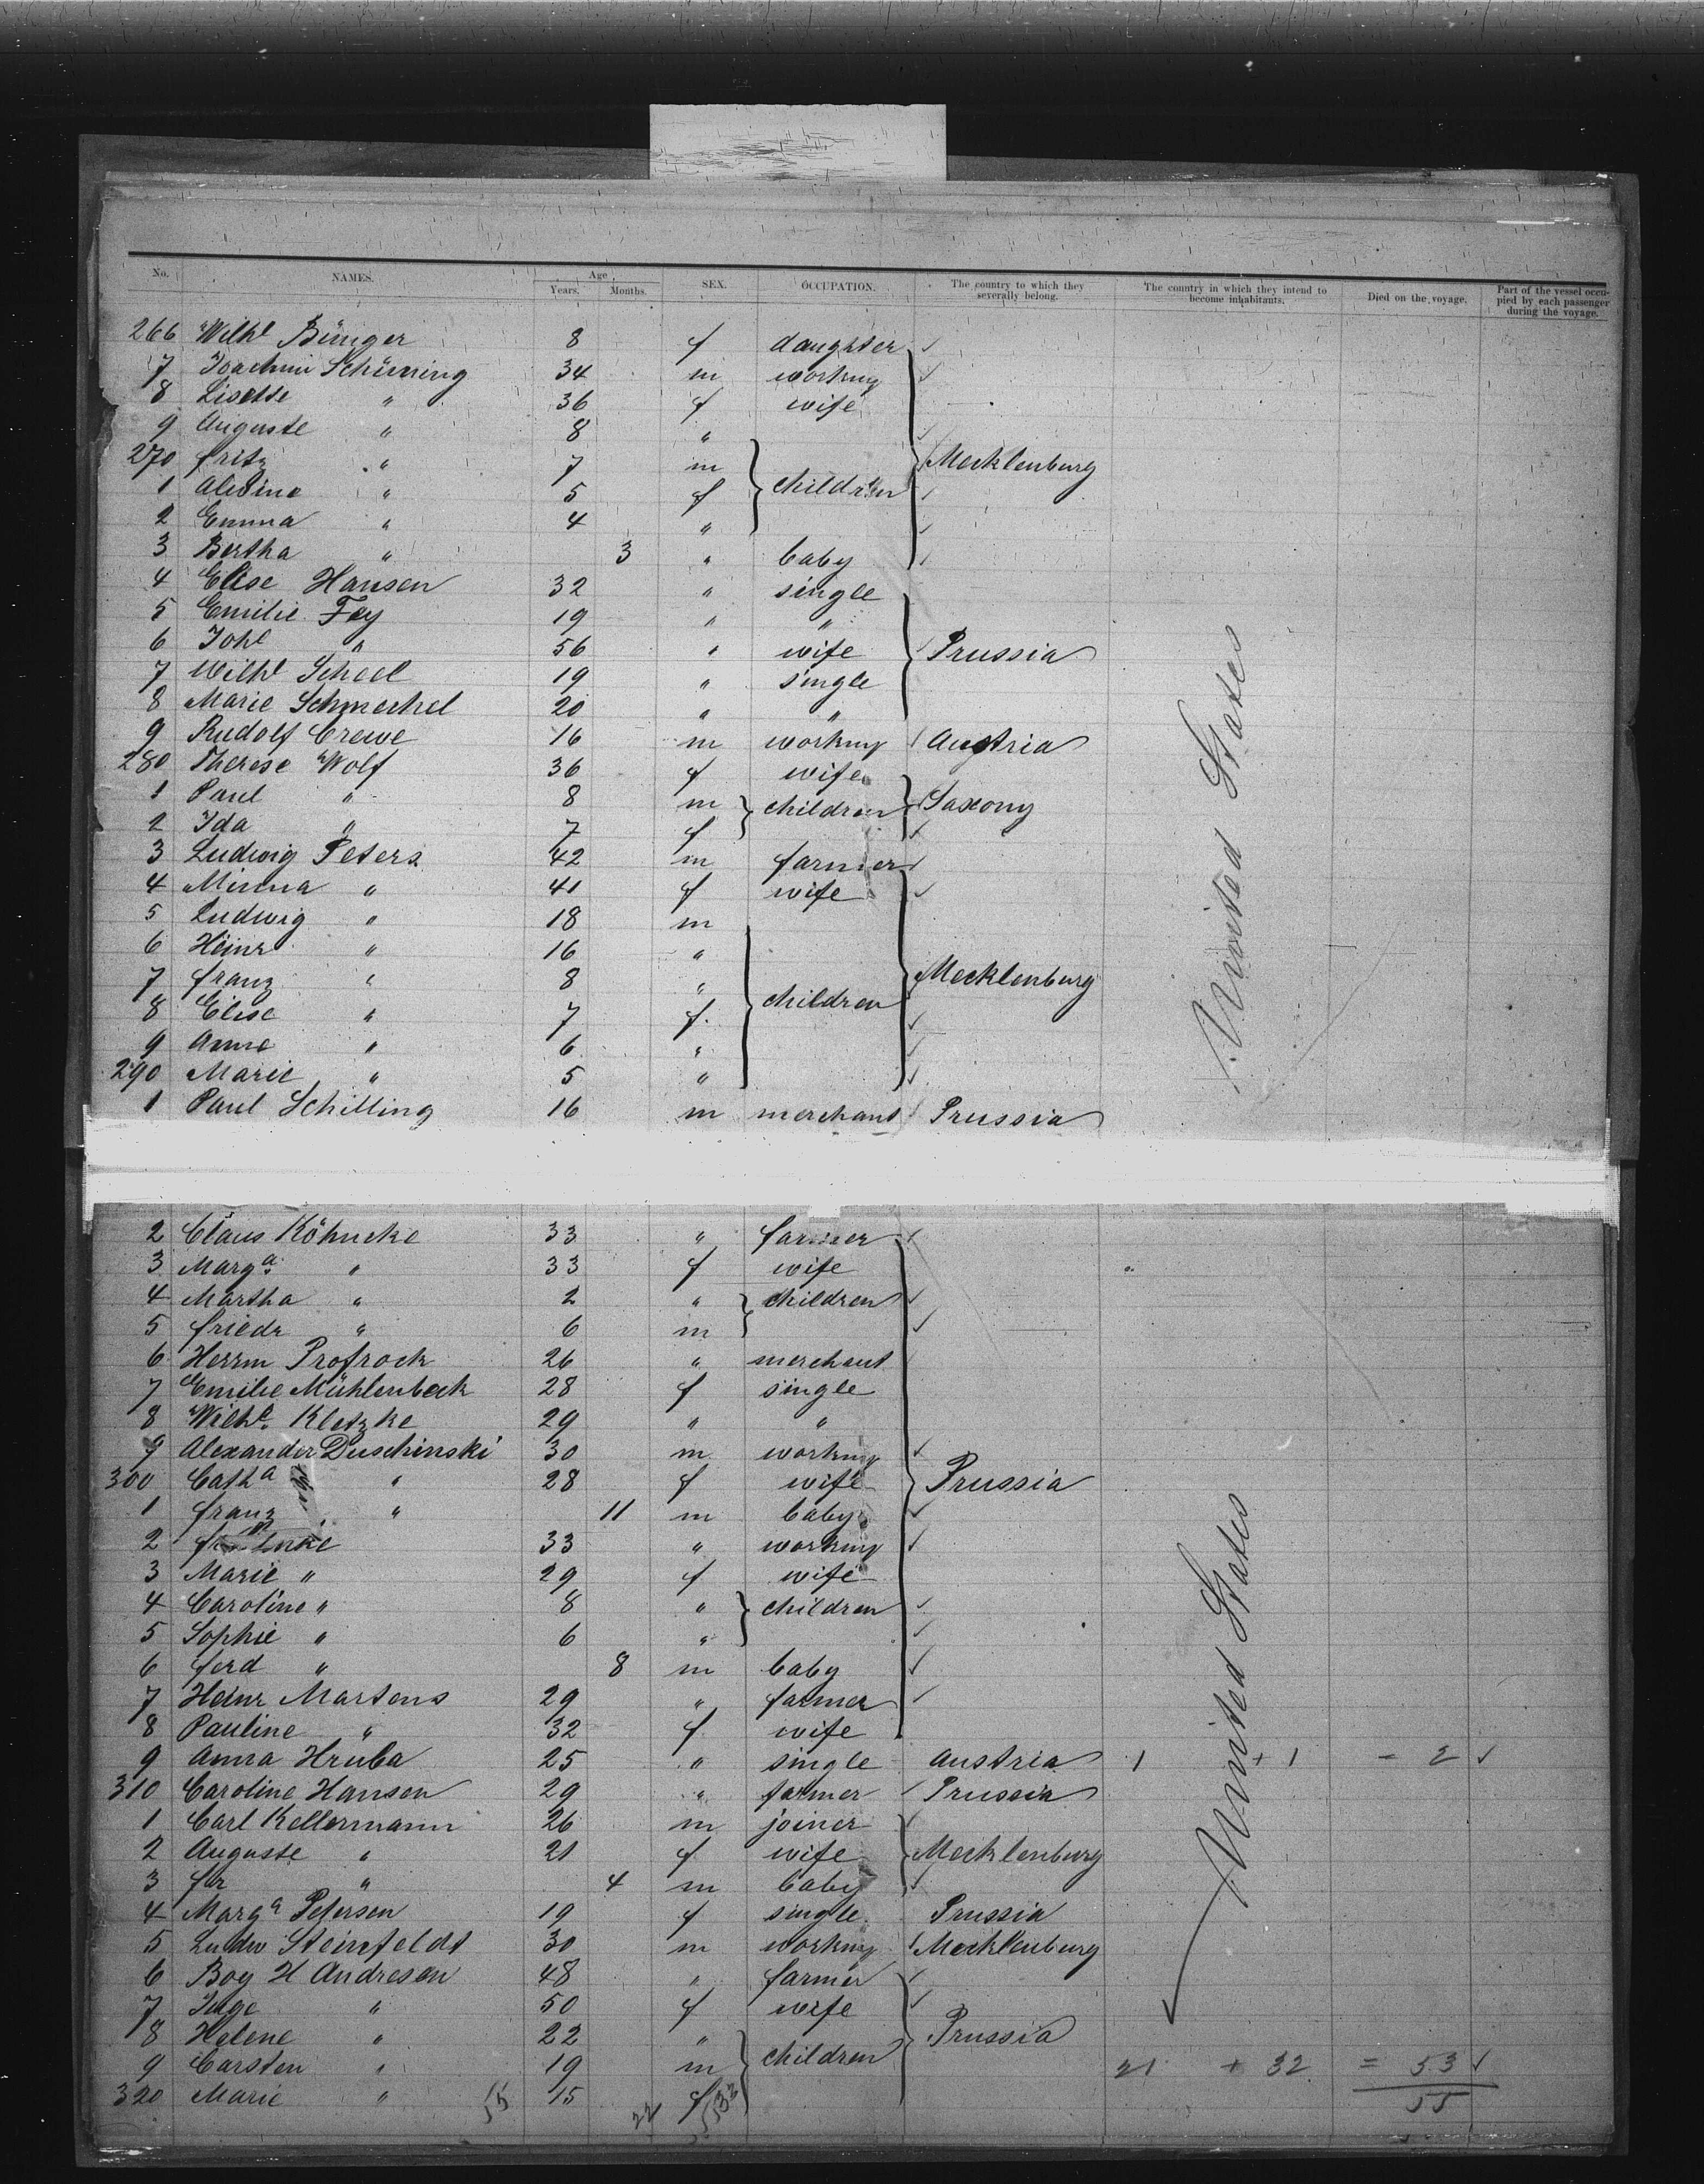 No. NAMES. Age Years. Months. SEX. OCCUPATION. The country to which they severally belong. The country in which they intend to become inhabitants. Died on the voyage. Part of the vessel occupied by each passenger during the voyage.
266 Wilhe Bünger 8 f daughter
7 Joachim Schüning 34 m working
8 Lisette " 36 f wife
9 Auguste " 8 "
270 Fritz " 7 m children Mecklenburg
1 Alvine " 5 f
2 Emma " 4 "
3 Bertha " 3 " baby
4 Elise Hansen 32 " single
5 Emilie Fey 19 " "
6 Johe " 56 " wife Prussia
7 Wilhe Scheel 19 " single
8 Marie Schmechel 20 " "
9 Rudolf Crewe 16 m working Austria
280 Therese Wolf 36 f wife
1 Paul " 8 m children Saxony
2 Ida " 7 f
3 Ludwig Peters 42 m farmer
4 Minna " 41 f wife
5 Ludwig " 18 m
6 Heinr " 16 "
7 Franz " 8 " children Mecklenburg
8 Elise " 7 f
9 Anna " 6 "
290 Marie " 5 "
1 Paul Schilling 16 m merchant Prussia
United States
2 Claus Köhncke 33 " farmer
3 Marga " 33 f wife
4 Martha " 2 " children
5 Friedr " 6 m
6 Herrm Profrock 26 " merchant
7 Emilie Mühlenbeck 28 f single
8 Wilhe Kletzke 29 " "
9 Alexander Duschinski 30 m working
300 Catha " 28 f wife Prussia
1 Franz " 11 m baby
2 33 " working
3 Marie " 29 f wife
4 Caroline " 8 " children
5 Sophie " 6 "
6 Ferd " 8 m baby
7 Heinr Martens 29 " farmer
8 Pauline " 32 f wife
9 Anna Hruba 25 " single Austria 1 + 1 = 2
310 Caroline Hansen 29 " farmer Prussia
1 Carl Kellermann 26 m joiner
2 Auguste " 21 f wife Mecklenburg
3 Fr " 4 m baby
4 Marga Petersen 19 f single Prussia
5 Ludw Steinfeldt 30 m working Mecklenburg
6 Boy H Andresen 48 " farmer
7 Inge " 50 f wife
8 Helene " 22 " children Prussia
9 Carsten " 19 m 21 + 32 = 53
320 Marie " 55 15 22 f 533 55
United States